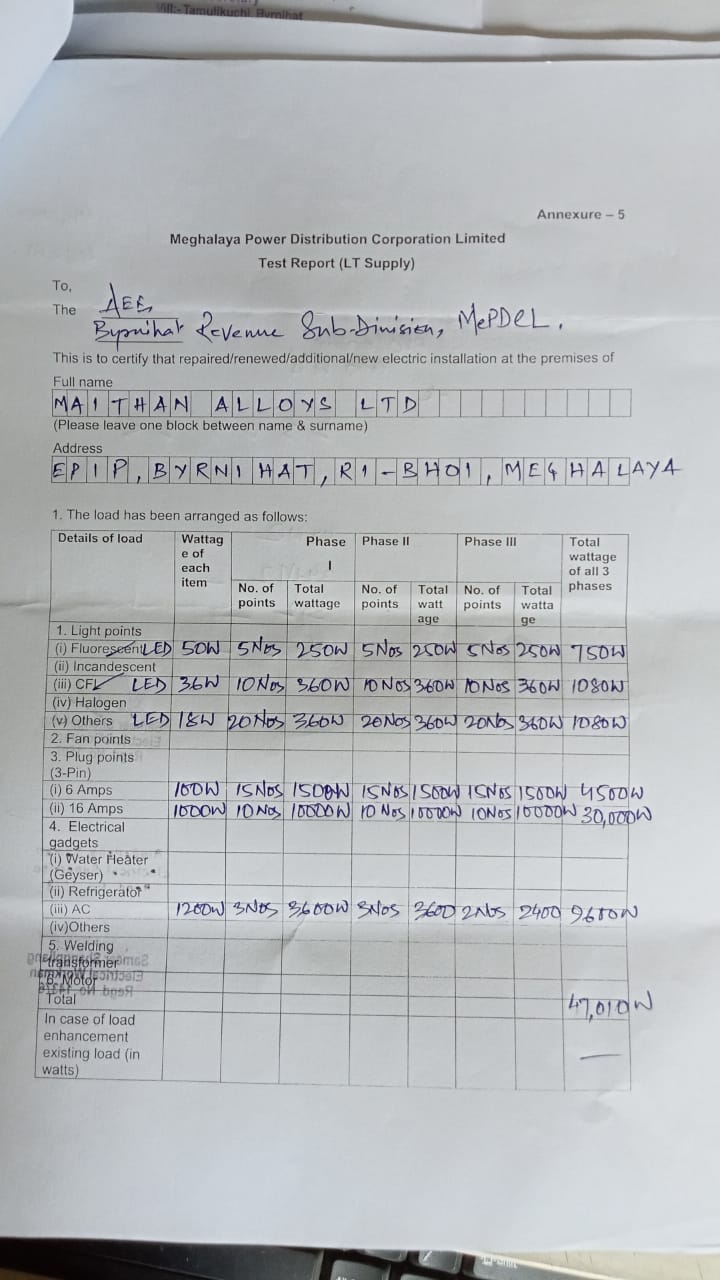 Vill:- Tamulikuchi, Byrnihat
Annexure – 5
Meghalaya Power Distribution Corporation Limited
Test Report (LT Supply)
To,
The AEE,
Byrnihat Revenue Sub-Division, MePDCL.
This is to certify that repaired/renewed/additional/new electric installation at the premises of
Full name
MAITHAN ALLOYS LTD
(Please leave one block between name & surname)
Address
EPIP, BYRNIHAT, RI-BHOI, MEGHALAYA
1. The load has been arranged as follows:
Details of load Wattage of each item Phase I Phase II Phase III Total wattage of all 3 phases
No. of points Total wattage No. of points Total wattage No. of points Total wattage
1. Light points
(i) Fluorescent LED 50W 5Nos 250W 5Nos 250W 5Nos 250W 750W
(ii) Incandescent
(iii) CFL LED 36W 10Nos 360W 10Nos 360W 10Nos 360W 1080W
(iv) Halogen
(v) Others LED 18W 20Nos 360W 20Nos 360W 20Nos 360W 1080W
2. Fan points
3. Plug points
(3-Pin)
(i) 6 Amps 100W 15Nos 1500W 15Nos 1500W 15Nos 1500W 4500W
(ii) 16 Amps 1000W 10Nos 10000W 10Nos 10000W 10Nos 10000W 30,000W
4. Electrical
gadgets
(i) Water Heater
(Geyser)
(ii) Refrigerator
(iii) AC 1200W 3Nos 3600W 3Nos 3600 2Nos 2400 9600W
(iv)Others
5. Welding
transformer
6. Motor
Total 47,010W
In case of load
enhancement
existing load (in
watts) —